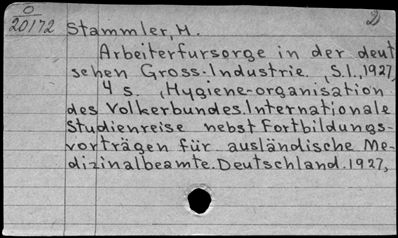 O
20172 Stammler, M. 2
Arbeiterfursorge in der deut
schen Gross-Industrie. (S.l., 1927,
4 s. (Hygiene-organisation
des Volkerbundes. Internationale
Studienreise nebst Fortbildungs-
vorträgen für ausländische Me-
dizinalbeamte. Deutschland. 1927,